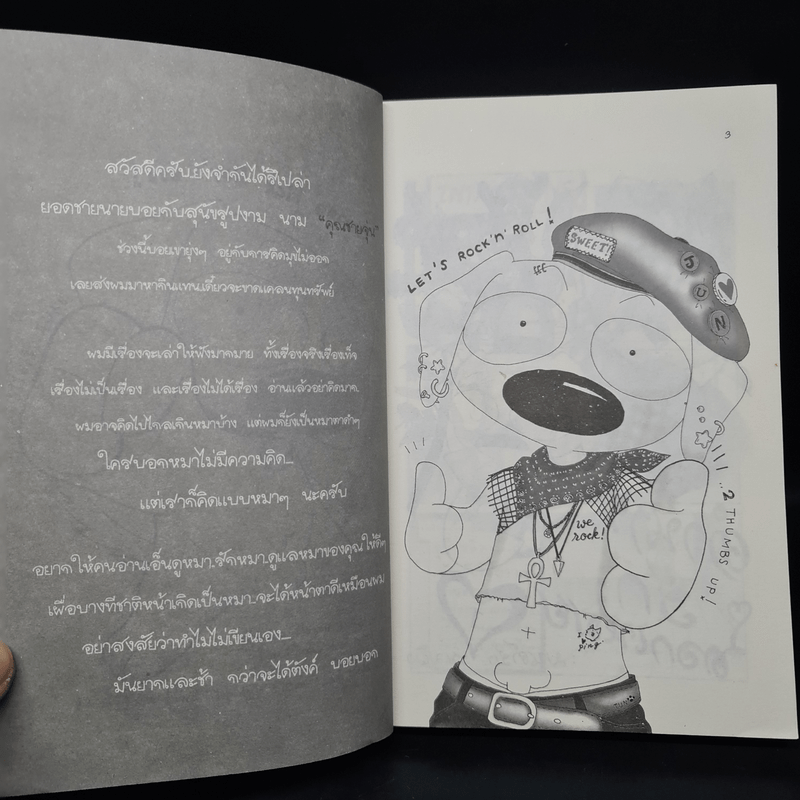 สวัสดีครับ ยังจำกันได้รึเปล่า
ยอดชายนายบอยกับสุนัขรูปงาม นาม "คุณชายจุ่น"
ช่วงนี้บอยเขายุ่งๆ อยู่กับการคิดมุขไม่ออก
เลยส่งผมมาหากินแทน เดี๋ยวจะขาดแคลนทุนทรัพย์
ผมมีเรื่องจะเล่าให้ฟังมากมาย ทั้งเรื่องจริงเรื่องเท็จ
เรื่องไม่เป็นเรื่อง และเรื่องไม่ได้เรื่อง อ่านแล้วอย่าคิดมาก
ผมอาจคิดไปไกลเกินหมาบ้าง แต่ผมก็ยังเป็นหมาตาดำๆ
ใครบอกหมาไม่มีความคิด...
แต่เราก็คิดแบบหมาๆ นะครับ
อยากให้คนอ่านเอ็นดูหมา รักหมา ดูแลหมาของคุณให้ดีๆ
เผื่อบางทีชาติหน้าเกิดเป็นหมา จะได้หน้าตาดีเหมือนผม
อย่าสงสัยว่าทำไมไม่เขียนเอง...
มันยากและช้า กว่าจะได้ตังค์ บอยบอก
3
LET'S ROCK 'N' ROLL!
SWEET
JUN
we
rock!
..2 THUMBS UP!
I
ping